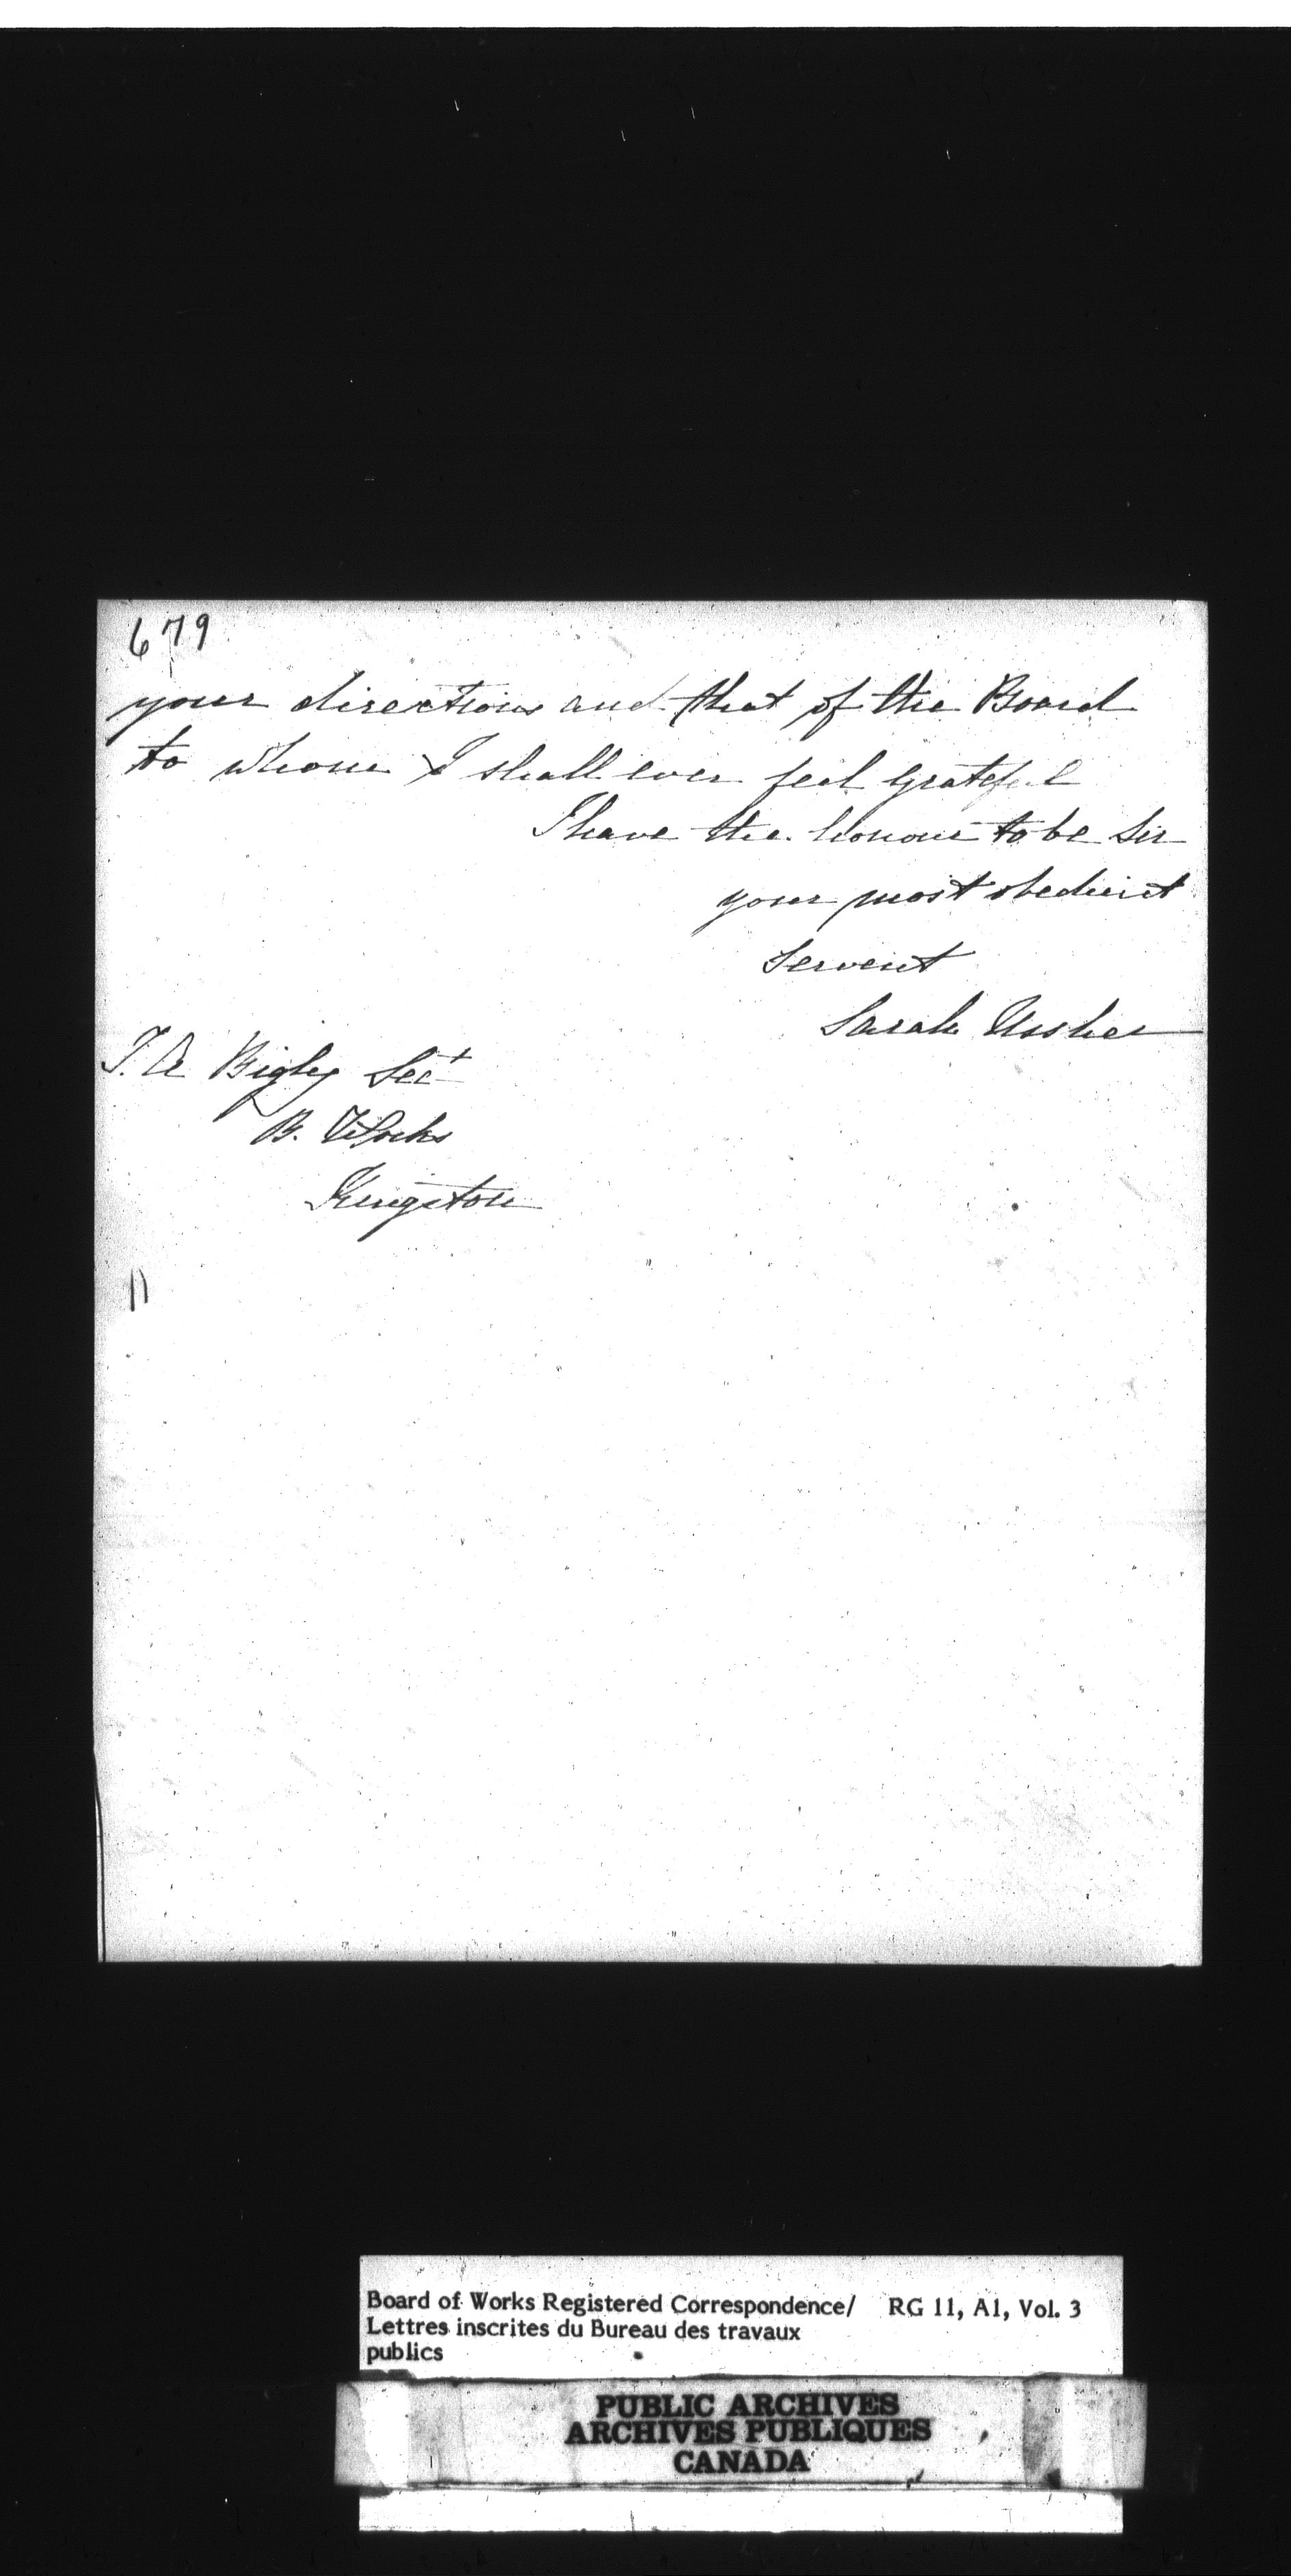 679
your directions and that of the Board
to whom I shall ever feel grateful
I have the honour to be Sir
your most obedient
Servent
Sarah Ussher
T. A Bigly Sect
B. Works
Kingston
Board of Works Registered Correspondence/ RG 11, A1, Vol. 3
Lettres inscrites du Bureau des travaux
publics
PUBLIC ARCHIVES
ARCHIVES PUBLIQUES
CANADA